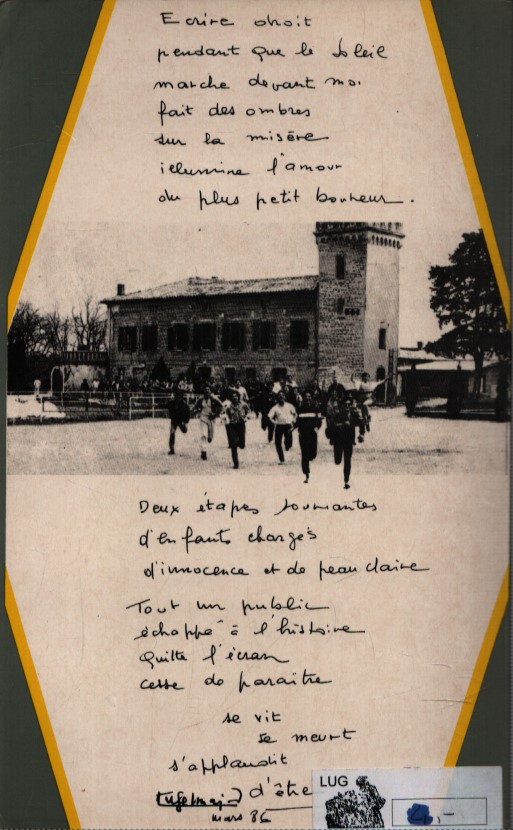 Ecrire droit
pendant que le soleil
marche devant moi
fait des ombres
sur la misère
illumine l'amour
du plus petit bonheur.
Deux étapes souriantes
d'enfants chargés
d'innocence et de peau claire
Tout un public
échappé à l'histoire
quitte l'écran
cesse de paraître
se vit
se meurt
s'applaudit
d'être
mars 86
LUG